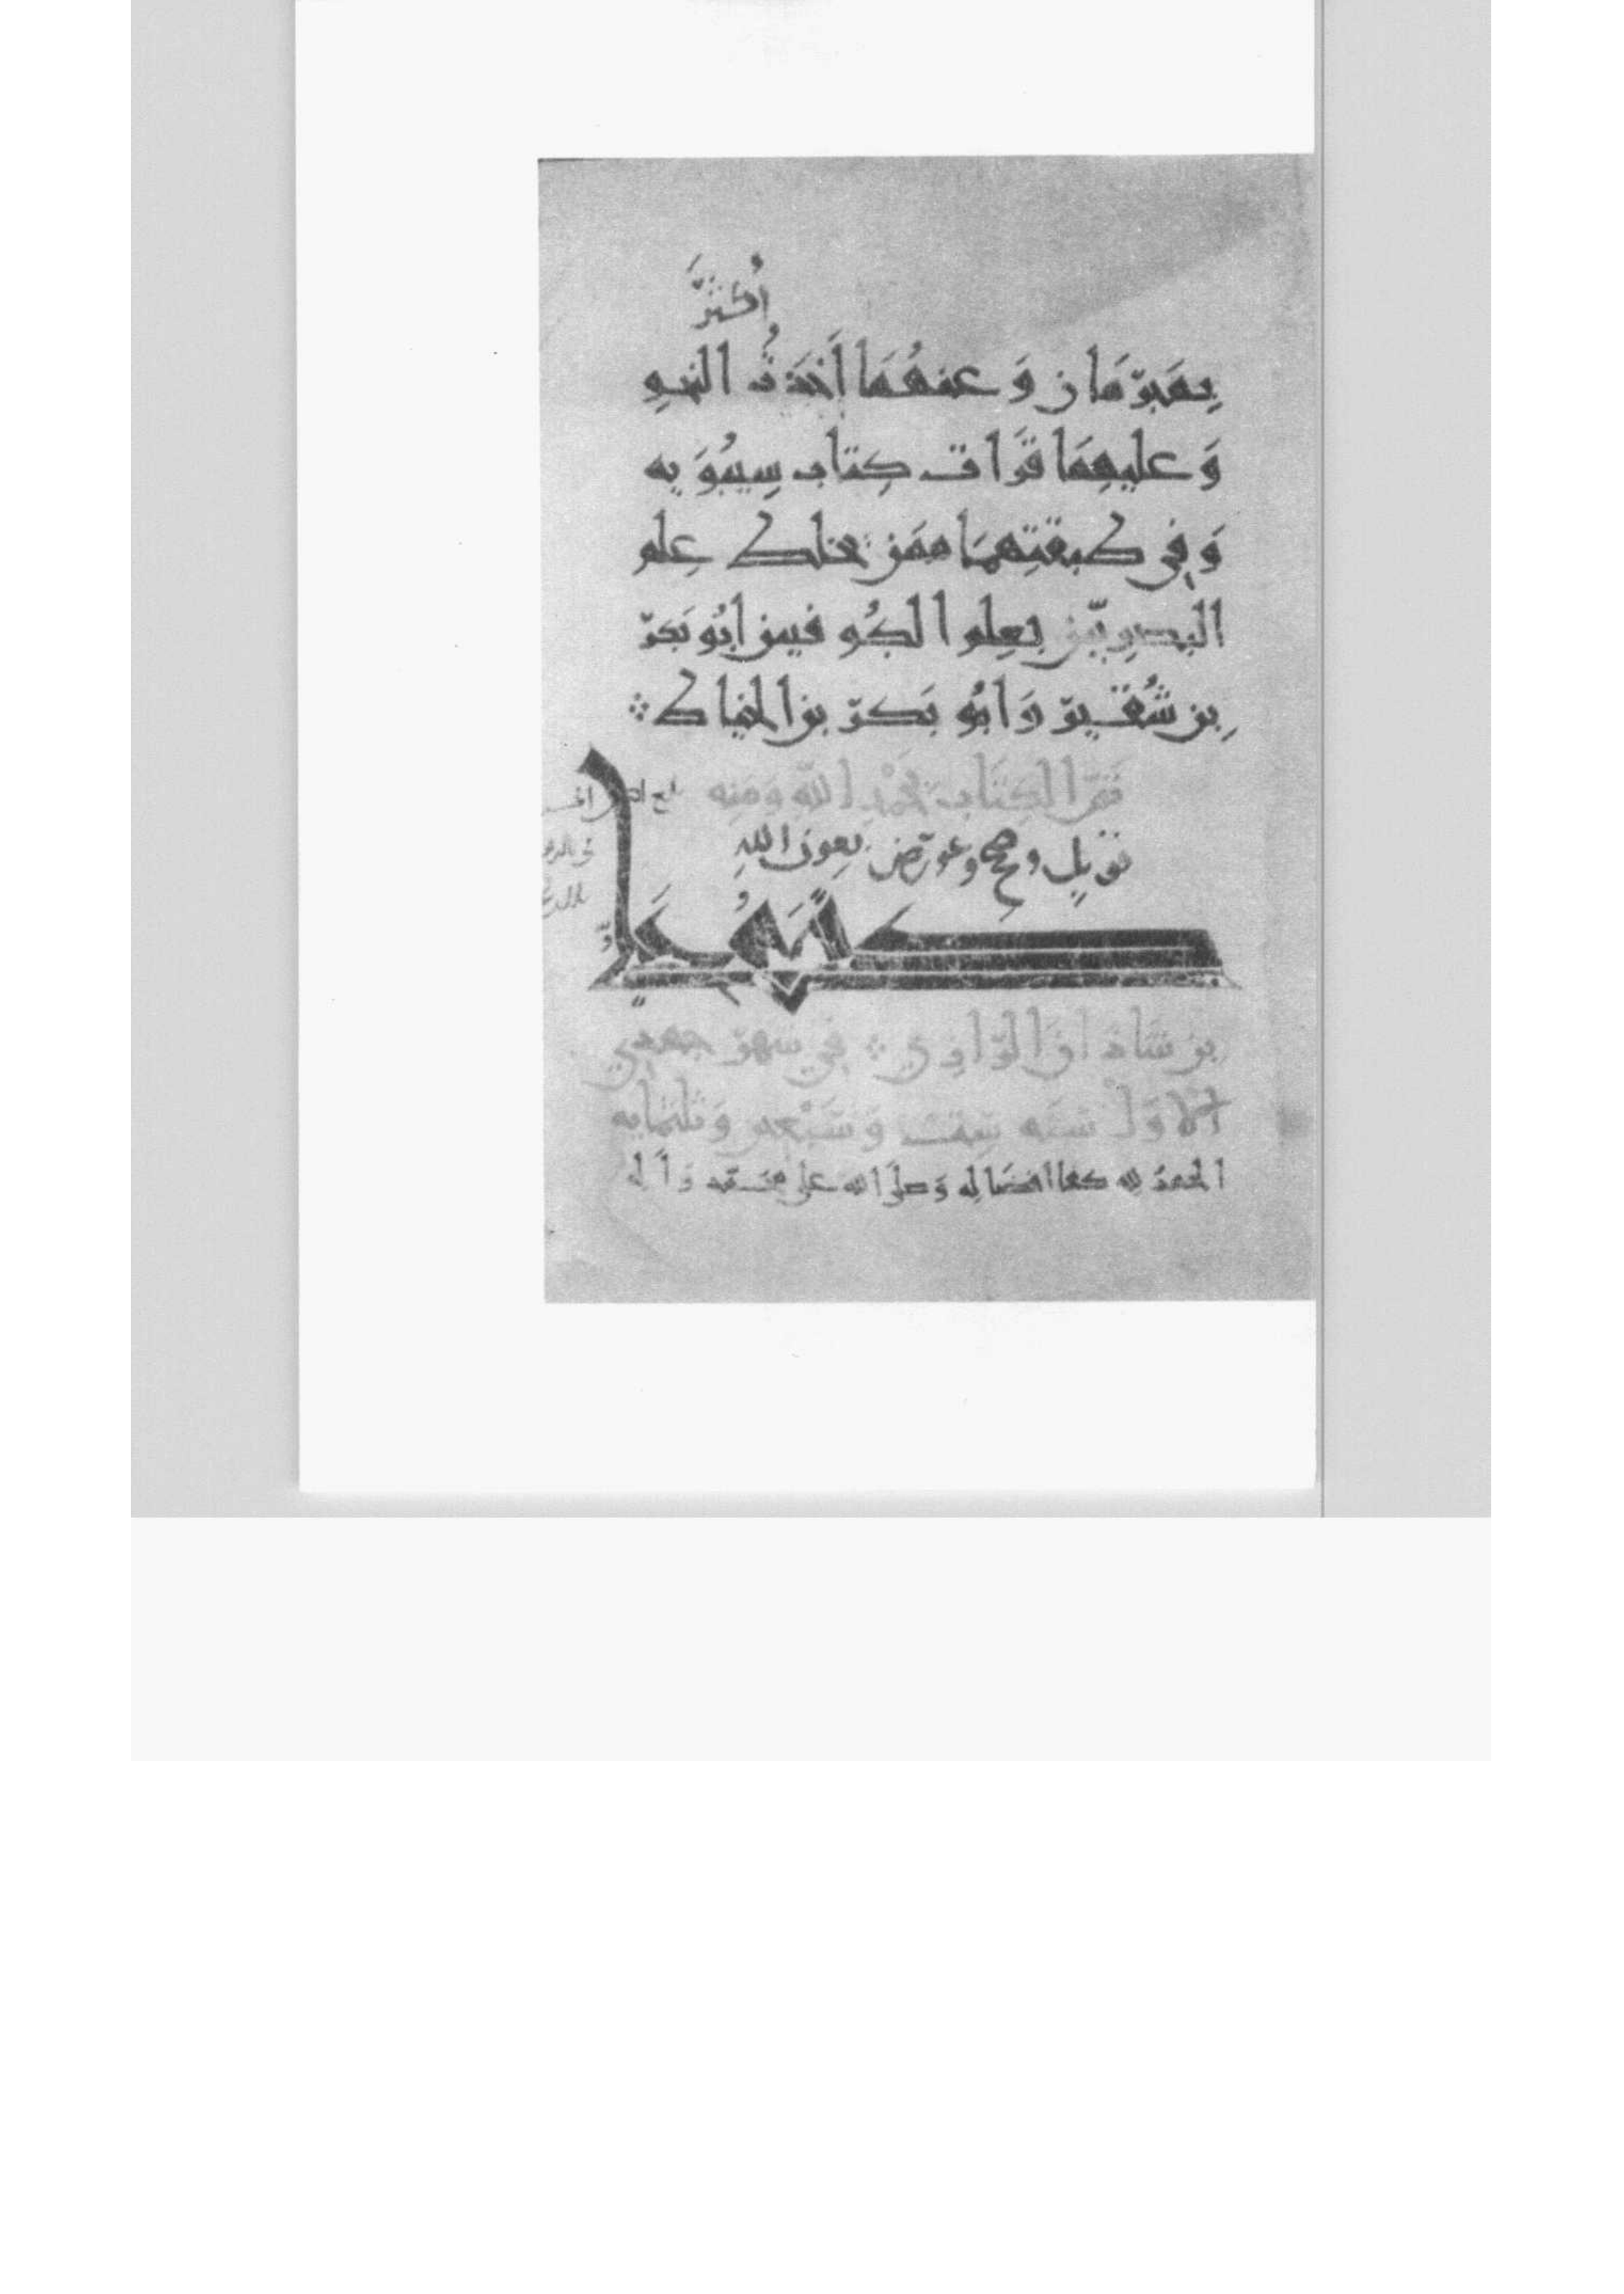 أكثر
بمبرمان وعنهما أخذت النحو
وعليهما قرأت كتاب سيبويه
وفي طبقتهما ممن خلط علم
البصريين بعلم الكوفيين ابو بكر
بن شقير وابو بكر بن الخياط
تم الكتاب بحمد الله ومنه
قوبل وصح وعورض بعون الله
كتبه علي
بن شاذان الرازي في شهر جمدي
الاول سنه ست وسبعين وثلثمايه
الحمد لله كفا افضاله وصلى الله على محمد وآله